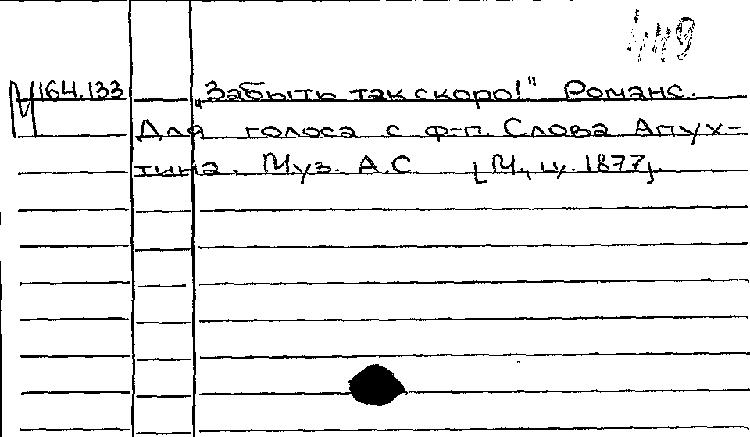 М164.133 „Забыть так скоро!" Романс.
Для голоса с ф-п. Слова Апух-
тина. Муз. А.С. [М., ц. 1877].